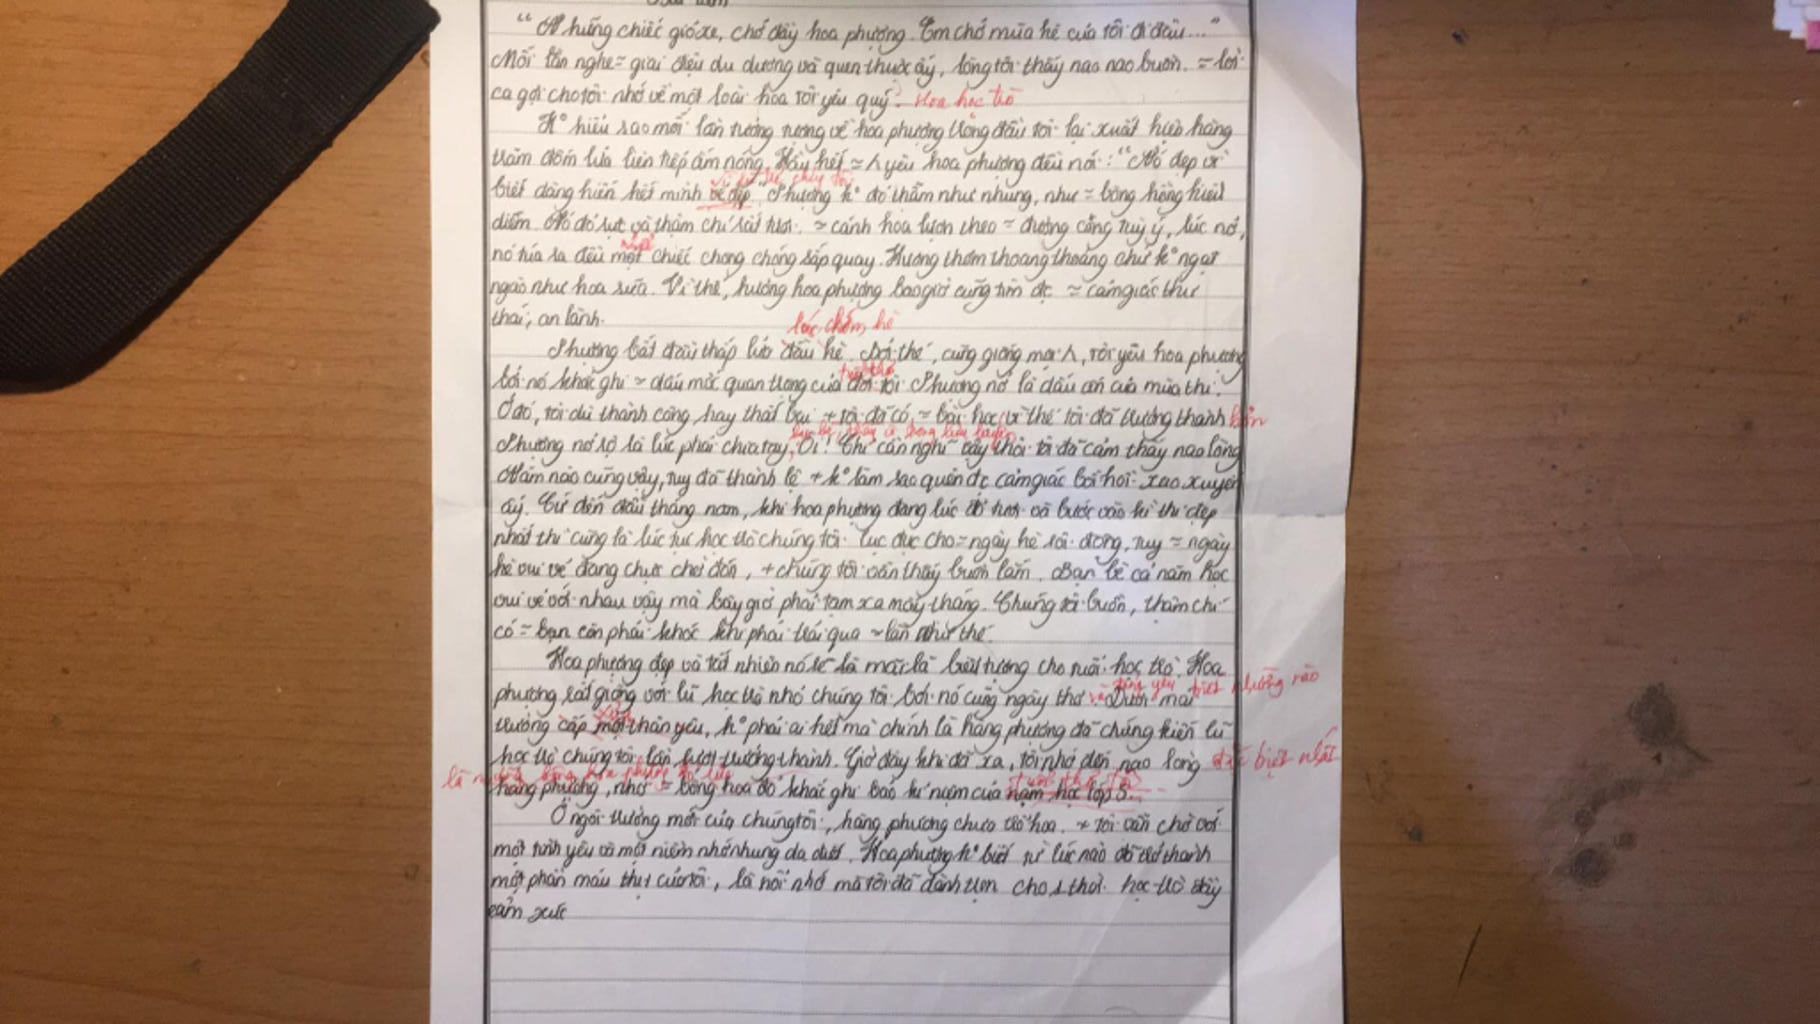 Bài làm
"Những chiếc giỏ xe, chở đầy hoa phượng. Em chở mùa hè của tôi đi đâu..."
Mỗi lần nghe = giai điệu du dương và quen thuộc ấy, lòng tôi thấy nao nao buồn. = lời
ca gợi cho tôi nhớ về một loài hoa tôi yêu quý: Hoa học trò
K° hiểu sao mỗi lần tưởng tượng về hoa phượng trong đầu tôi lại xuất hiện hàng
trăm đốm lửa liên tiếp ấm nóng. Hầu hết = người yêu hoa phượng đều nói: "Nó đẹp vì
biết dâng hiến hết mình vẻ đẹp". Phượng k° đỏ thắm như nhung, như = bông hồng kiều
diễm. Nó đỏ rực và thậm chí rất tươi. = cánh hoa lượn theo = đường cong tuỳ ý, lúc nở,
như
nó túa ra đều một chiếc chong chóng sắp quay. Hương thơm thoang thoảng chứ k° ngạt
ngào như hoa sữa. Vì thế, hướng hoa phượng bao giờ cũng tìm đc = cảm giác thư
thái, an lành.
lúc chớm hè
Phượng bắt đầu thắp lửa đầu hè. Bởi thế, cũng giống mọi người, tôi yêu hoa phượng
bởi nó khắc ghi = dấu mốc quan trọng của đời tôi. Phượng nở là dấu ấn của mùa thi.
Ở đó, tôi dù thành công hay thất bại + tôi đã có = bài học vì thế tôi đã trưởng thành hơn
Phượng nở rộ là lúc phải chia tay. Ôi! Chỉ cần nghĩ vậy thôi tôi đã cảm thấy nao lòng
Năm nào cũng vậy, tuy đã thành lệ + k° làm sao quên đc cảm giác bồi hồi xao xuyến
ấy. Cứ đến đầu tháng năm, khi hoa phượng đang lúc đỏ tươi và bước vào kì thi đẹp
nhất thì cũng là lúc tụi học trò chúng tôi lục đục cho = ngày hè sôi động, tuy = ngày
hè vui vẻ đang chực chờ đón, + chúng tôi vẫn thấy buồn lắm. Bạn bè cả năm học
vui vẻ với nhau vậy mà bây giờ phải tạm xa mấy tháng. Chúng tôi buồn, thậm chí
có = bạn còn phải khóc khi phải trải qua = lần như thế.
Hoa phượng đẹp và tất nhiên nó sẽ là mãi là biểu tượng cho tuổi học trò. Hoa
đáng yêu biết nhường nào
phượng rất giống với lũ học trò nhỏ chúng tôi bởi nó cũng ngây thơ và. Dưới mái
trường cấp một thân yêu, k° phải ai hết mà chính là hàng phượng đã chứng kiến lũ
học trò chúng tôi lần lượt trưởng thành. Giờ đây khi đã xa, tôi nhớ đến nao lòng đặc biệt nhất
là những bông hoa phượng đỏ lửa
hàng phượng, nhớ = bông hoa đỏ khắc ghi bao kỉ niệm của năm học lớp 5.
Ở ngôi trường mới của chúng tôi, hàng phượng chưa trổ hoa. + tôi vẫn chờ với
một tình yêu và một niềm nhớ nhung da diết. Hoa phượng k° biết từ lúc nào đã trở thành
một phần máu thịt của tôi, là nỗi nhớ mà tôi đã dành trọn cho 1 thời học trò đầy
cảm xúc